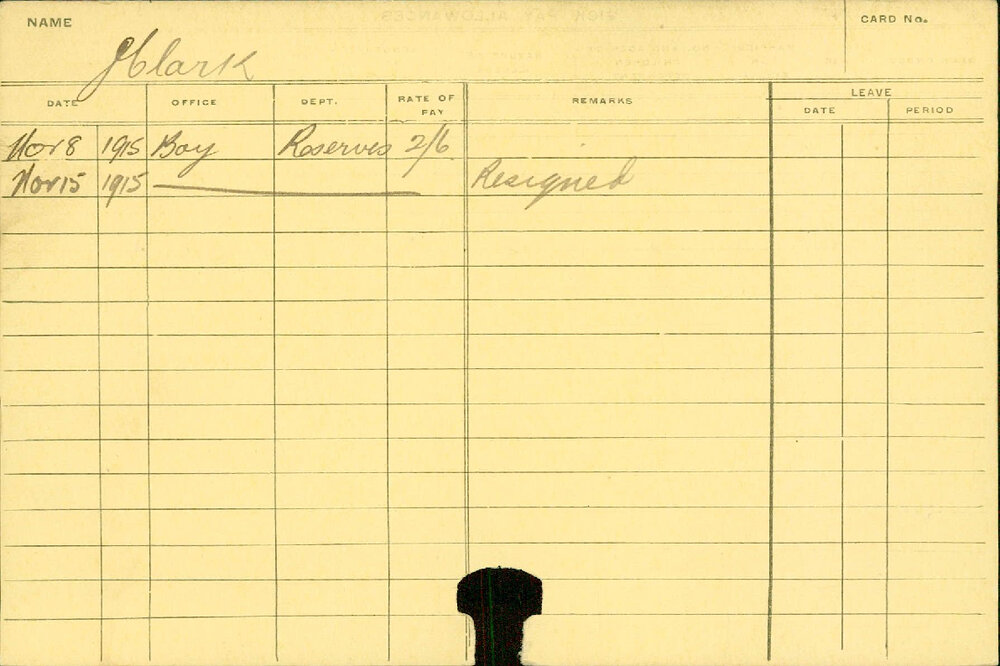 NAME
CARD No.
J Clark
DATE OFFICE DEPT. RATE OF PAY REMARKS LEAVE
DATE PERIOD
Nov 8 1915 Boy Reserves 2/6
Nov 15 1915 Resigned